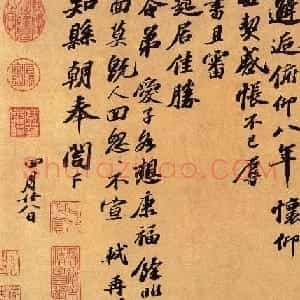 邂逅俯仰八年懷仰
世契感悵不已辱
書且審
起居佳勝
令弟愛子各想康福餘非
面莫究人回怱不宣軾再
知縣朝奉閣下
四月廿八日